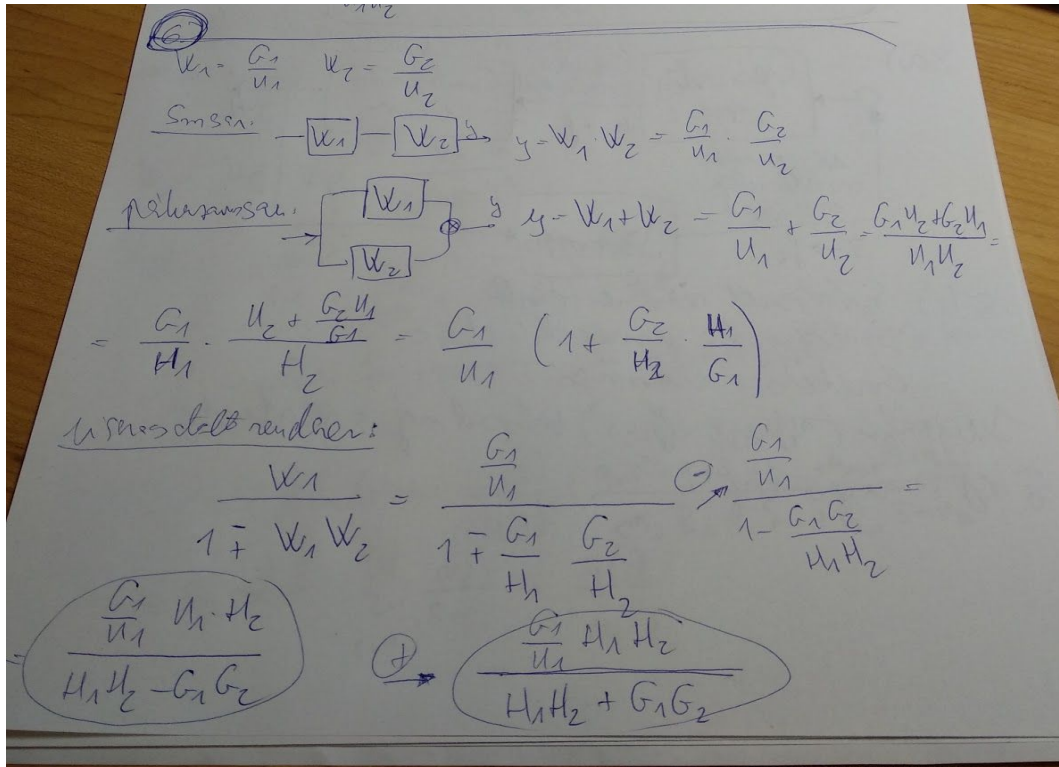 6
W1 = G1/H1 W2 = G2/H2
W1 W2 y y = W1 · W2 = G1/H1 · G2/H2
W1 W2 y y = W1 + W2 = G1/H1 + G2/H2 = G1H2+G2H1/H1H2 =
= G1/H1 · H2 + G2H1/G1 / H2 = G1/H1 (1 + G2/H2 · H1/G1)
W1 / 1 ∓ W1 W2 = G1/H1 / 1 ∓ G1/H1 G2/H2 ⊖ → G1/H1 / 1 - G1G2/H1H2 =
= G1/H1 H1·H2 / H1H2 - G1G2 ⊕ → G1/H1 H1H2 / H1H2 + G1G2